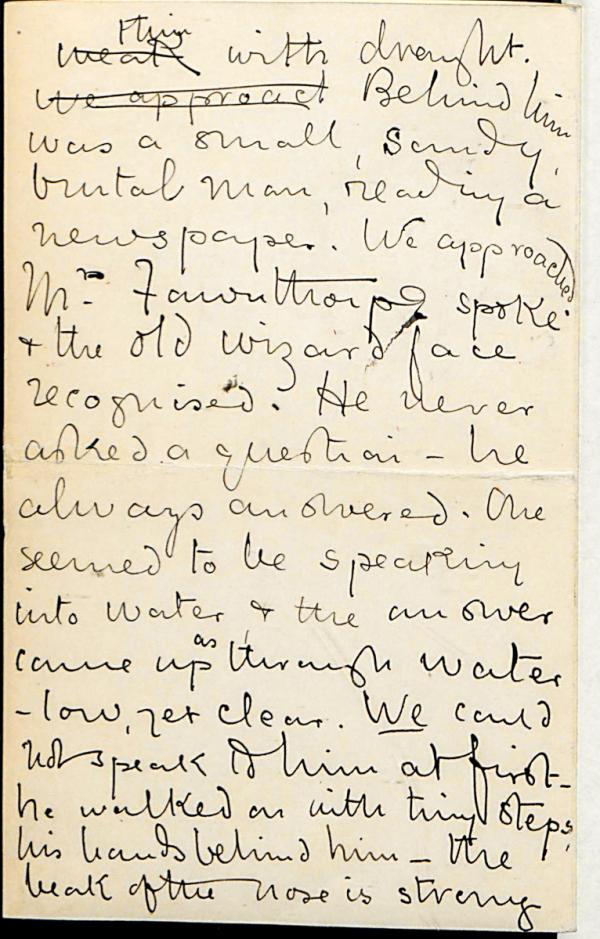 Thin
weak with drought.
we approact Behind him
was a small, sandy,
brutal man, reading a
newspaper. We approached
Mr. Fawnthorpe spoke
& the old wizard face
recognised. He never
asked a question – he
always answered. One
seemed to be speaking
into water, & the answer
came up as through water
– low, yet clear. We could
not speak to him at first –
he walked on with tiny steps,
his hands behind him – the
beak of the nose is strong